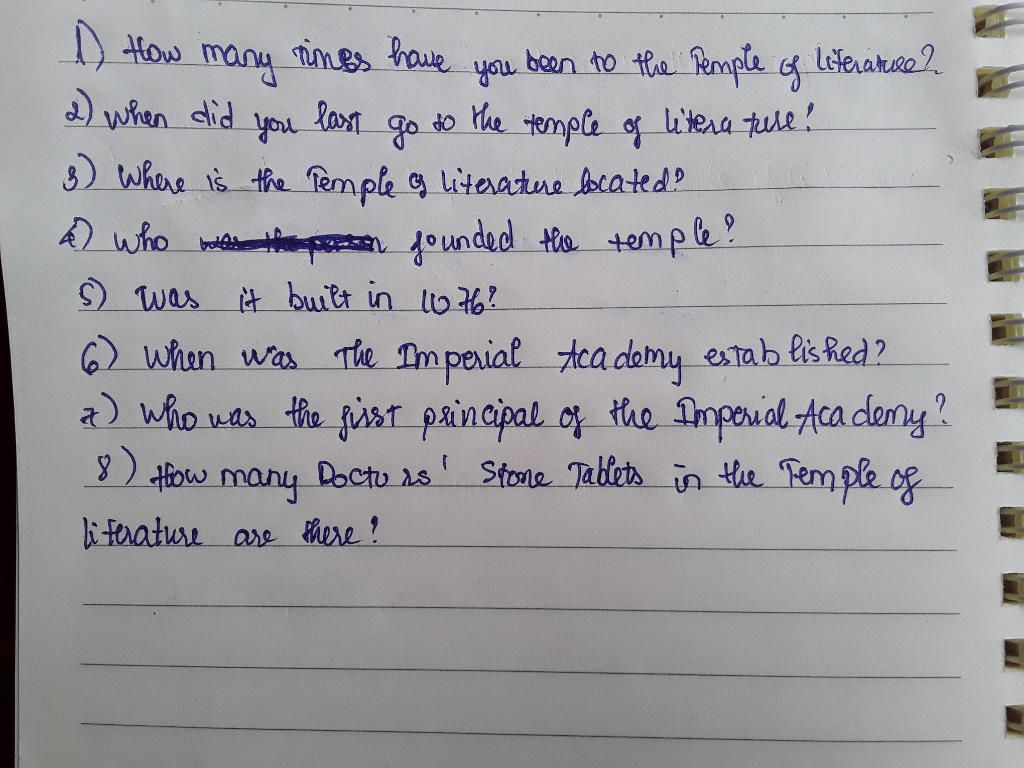 1) How many times have you been to the Temple of literature?
2) When did you last go to the temple of literature?
3) Where is the Temple of literature located?
4) Who was the person founded the temple?
5) Was it built in 1076?
6) When was The Imperial Academy established?
7) Who was the first principal of the Imperial Academy?
8) How many Doctors' Stone Tablets in the Temple of
literature are there?